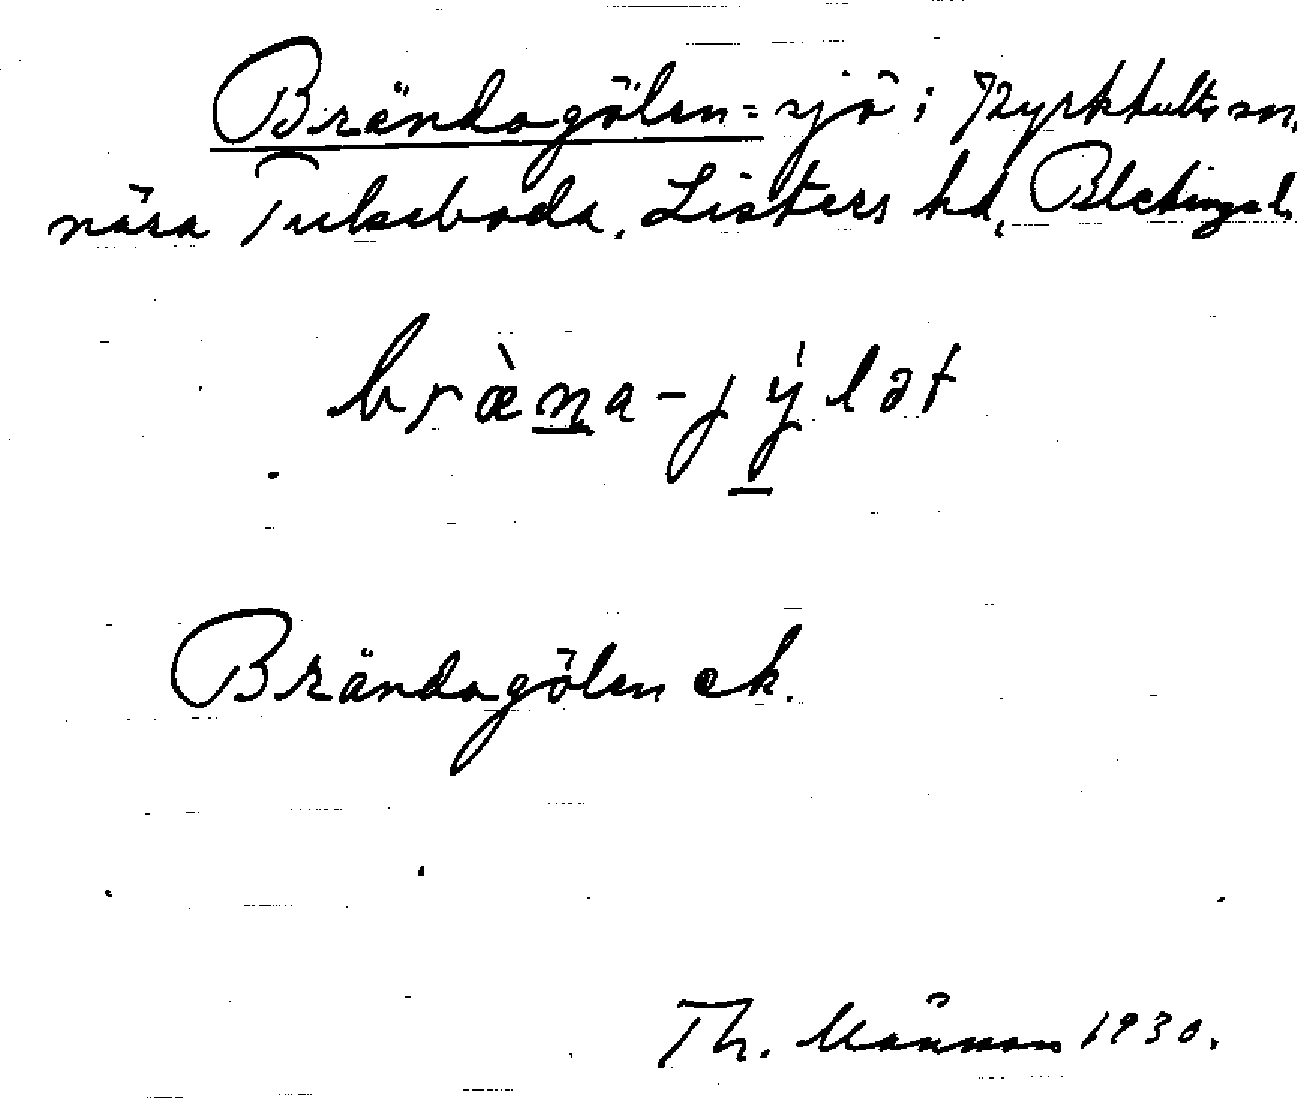 Brändagölen = sjö i Kyrkhults sn,
nära Tulseboda, Listers hd, Blekinge l.
bræ̀na-jýlət
Brändagölen ek.
Th. Månman 1930.